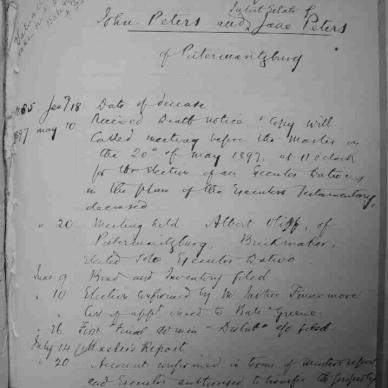 Joint Estate of
John Peters and Jane Peters
of Pietermaritzburg
1885 Jany 18 Date of decease
1897 May 10 Received Death notice & Copy will
Called meeting before the Master on
the 20th of May 1897, at 11 o'clock
for the Election of an Executor Dative
in the place of the Executor Testamentary,
deceased
" 20 Meeting held Albert of
Pietermaritzburg, Brickmaker,
Elected Sole Executor Dative
June 9 Bond and Inventory filed
" 10 Election confirmed by Mr Justice Finnemore
of appt issued to Greene
" 26 First & Final & filed
July 14 Master's Report
" 20 Account confirmed in terms of Masters report
and Executor authorised to transfer the property